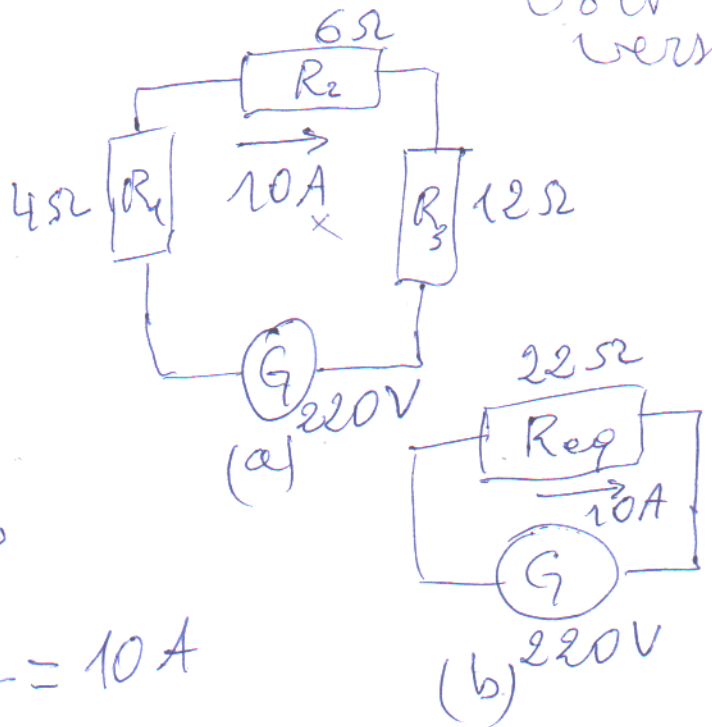 6Ω
vers
R₂
4Ω
R₁
10A
R₃
12Ω
G
220V
(a)
22Ω
Req
10A
G
220V
(b)
= 10 A